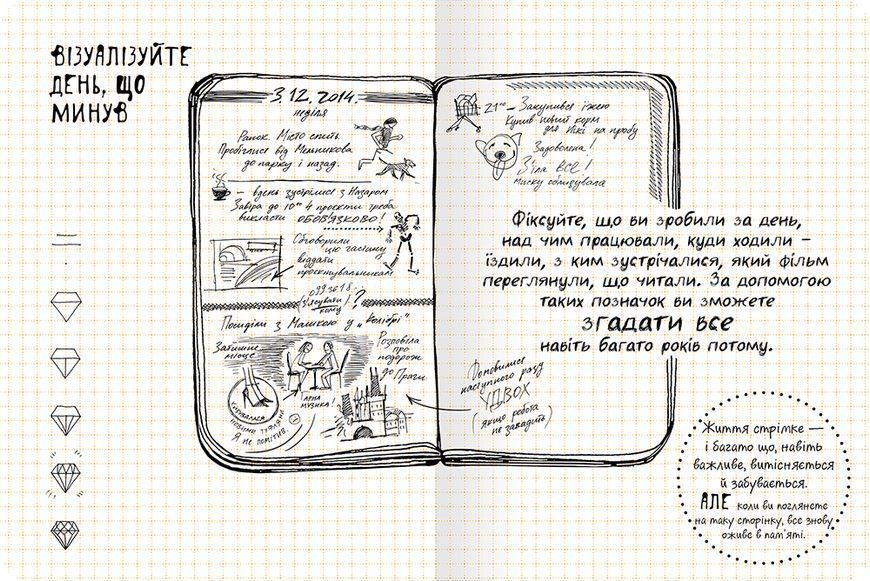 ВІЗУАЛІЗУЙТЕ
ДЕНЬ, ЩО
МИНУВ
3.12.2014.
неділя
Ранок. Місто спить.
Пробіглися від Мельникова
до парку і назад.
– вдень зустрілися з Назаром
Завтра до 10⁰⁰ 4 проєкти треба
викласти ОБОВ'ЯЗКОВО!
Обговорили
цю частину
віддати
проєктувальникам
(З'ясувати
кому)?
Посиділи з Машкою у „Колібрі"
Затишне
місце
Розповіла
про
подорож
до Праги
МУЗИКА!
НОВИМИ ТУФЛЯМИ
Я НЕ ПОМІТИВ.
21⁰⁰ – Закупився їжею
Купив новий корм
для Нікі на пробу
Задоволена!
З'їла ВСЕ!
миску облизувала
Фіксуйте, що ви зробили за день,
над чим працювали, куди ходили –
їздили, з ким зустрічалися, який фільм
переглянули, що читали. За допомогою
таких позначок ви зможете
ЗГАДАТИ ВСЕ
навіть багато років потому.
Домовились
наступного разу
УДВОХ
(якщо робота
не завадить)
Життя стрімке —
і багато що, навіть
важливе, витісняється
й забувається.
АЛЕ коли ви поглянете
на таку сторінку, все знову
оживе в пам'яті.